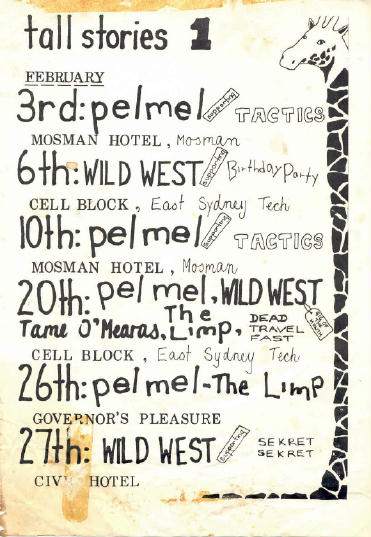 tall stories 1
FEBRUARY
3rd: pel mel supporting TACTICS
MOSMAN HOTEL, Mosman
6th: WILD WEST supporting Birthday Party
CELL BLOCK, East Sydney Tech
10th: pel mel supporting TACTICS
MOSMAN HOTEL, Mosman
20th: pel mel, WILD WEST
Tame O'Mearas, The Limp, DEAD TRAVEL FAST
CELL BLOCK, East Sydney Tech
26th: pel mel - The Limp
GOVERNOR'S PLEASURE
27th: WILD WEST supporting SEKRET SEKRET
HOTEL